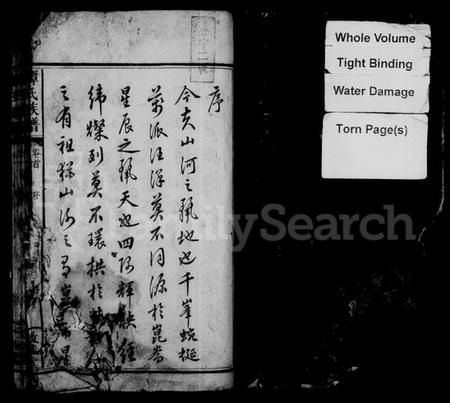 序
今夫山河之麗地也千峯蜿蜒
萬派汪洋莫不同源於崑崙
星辰之麗天也四野輝映經
緯燦列莫不環拱於
之有祖猶山河之有崑
星
氏族譜
卷首
序
Whole Volume
Tight Binding
Water Damage
Torn Page(s)
FamilySearch